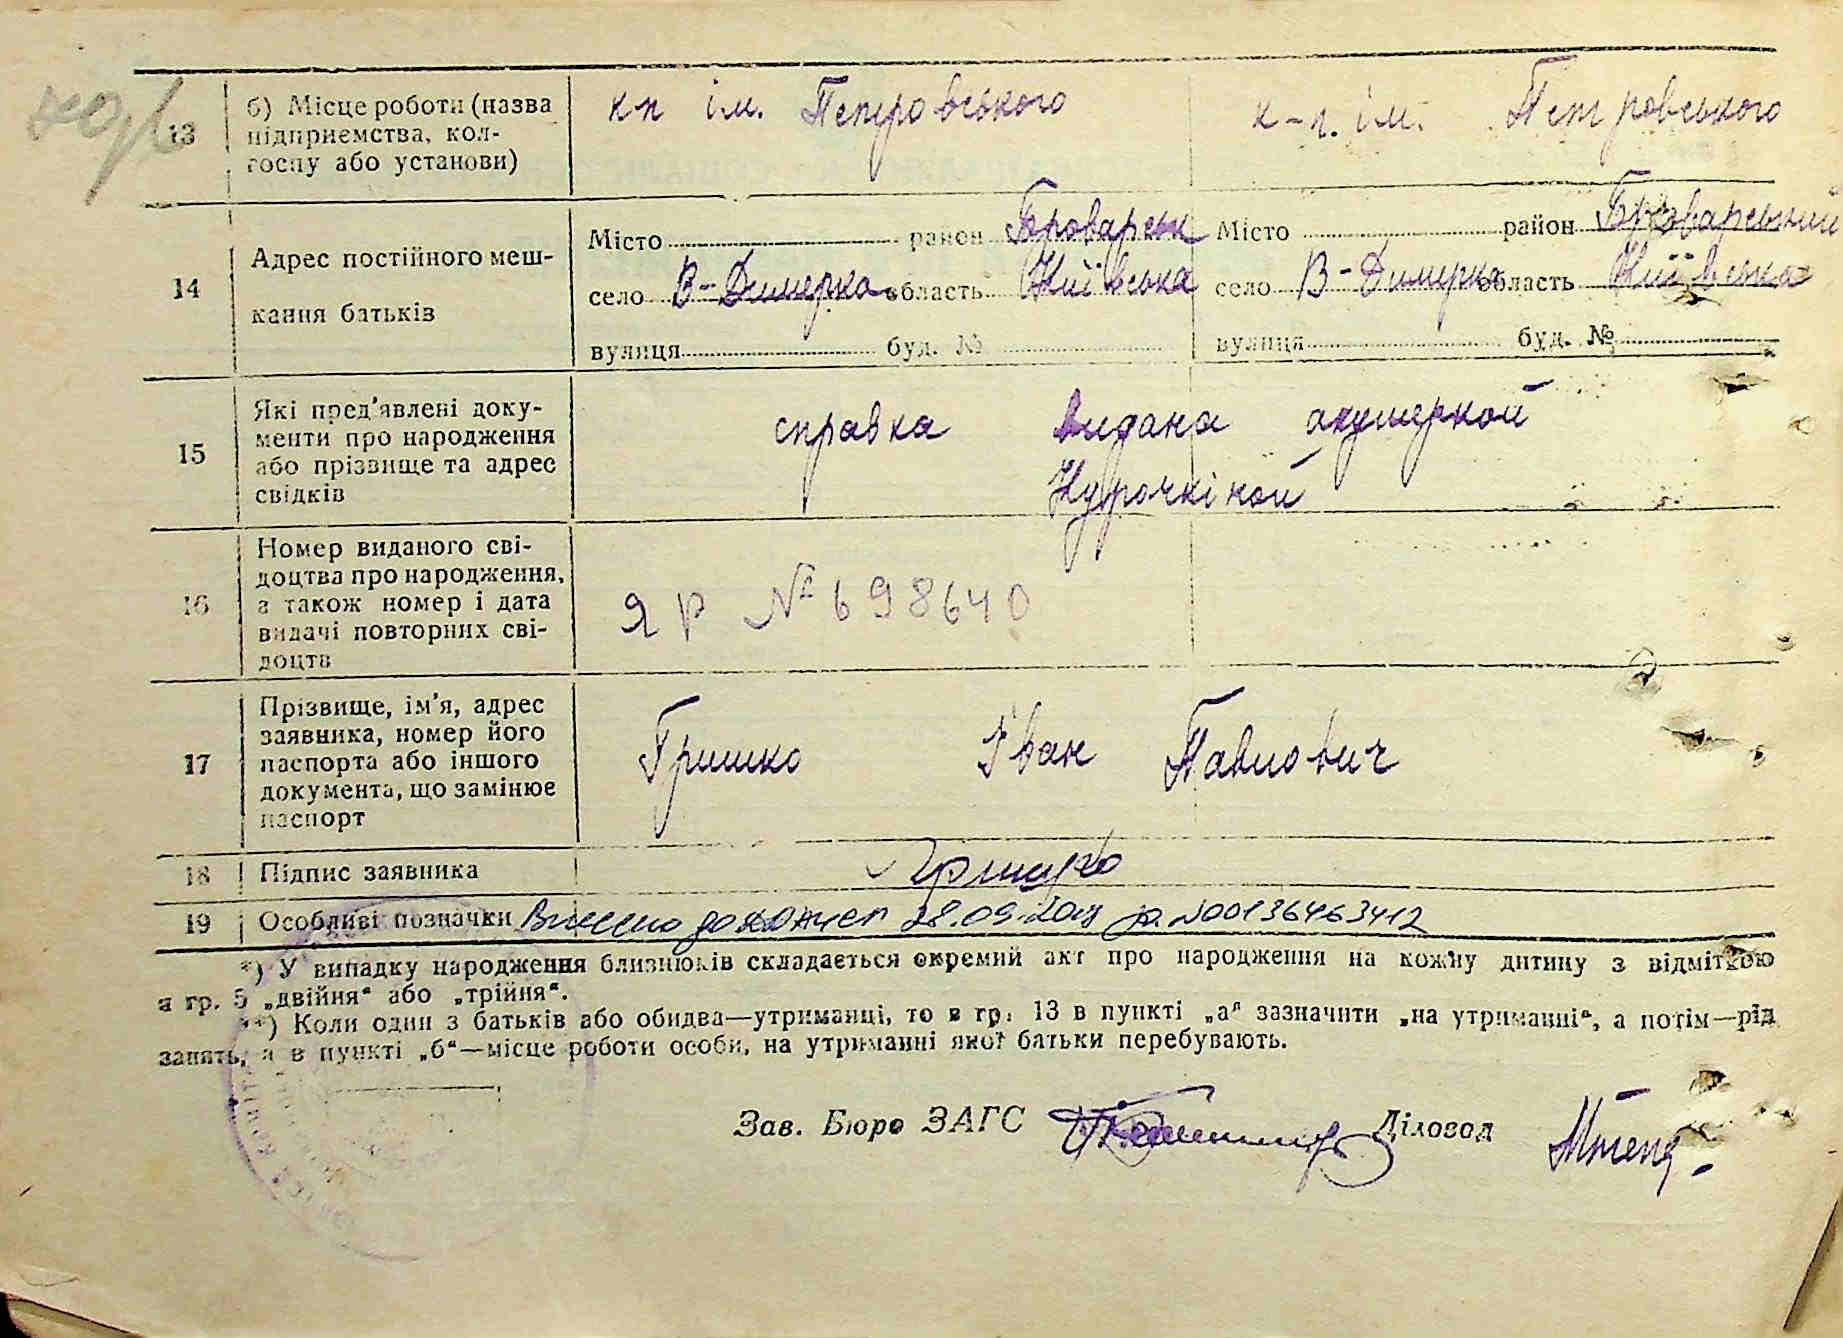 13 б) Місце роботи (назва підприємства, колгоспу або установи)
кп ім. Петровського
к-п. ім. Петровського
14 Адрес постійного мешкання батьків
Місто район Броварськ
село В-Димерка область Київська
вулиця буд. №
Місто район Броварський
село В-Димерка область Київська
вулиця буд. №
15 Які пред'явлені документи про народження або прізвище та адрес свідків
справка видана акушеркой
Курочкіной
16 Номер виданого свідоцтва про народження, а також номер і дата видачі повторних свідоцтв
ЯР № 698640
17 Прізвище, ім'я, адрес заявника, номер його паспорта або іншого документа, що замінює паспорт
Гришко Іван Павлович
18 Підпис заявника
Гришко
19 Особливі позначки Внесено до 28.09. №00136463412
*) У випадку народження близнюків складається окремий акт про народження на кожну дитину з відміткою
в гр. 5 „двійня“ або „трійня“.
**) Коли один з батьків або обидва—утриманці, то в гр. 13 в пункті „а“ зазначити „на утриманні“, а потім—рід
занять, а в пункті „б“—місце роботи особи, на утриманні якої батьки перебувають.
Зав. Бюро ЗАГС Діловод